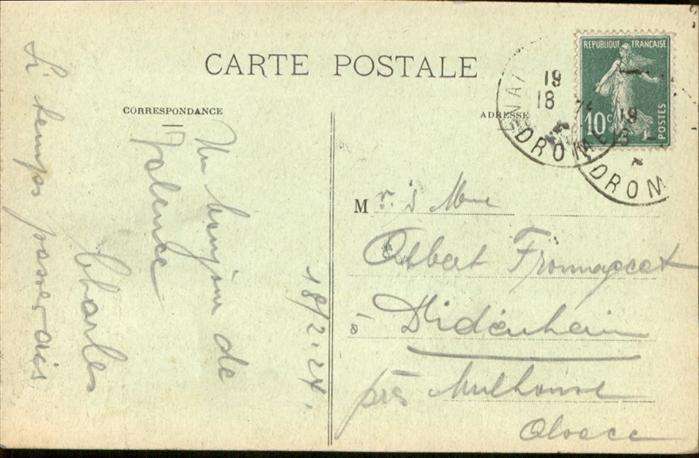 CARTE POSTALE
CORRESPONDANCE
ADRESSE
RÉPUBLIQUE FRANÇAISE
10c
POSTES
19
18
DROM
19
DROM
Un bonjour de
Valence
Charles
Si temps passerais
18/2.24.
M r. & Mme
Albert Fromageat
à Didenheim
près Mulhouse
Alsace